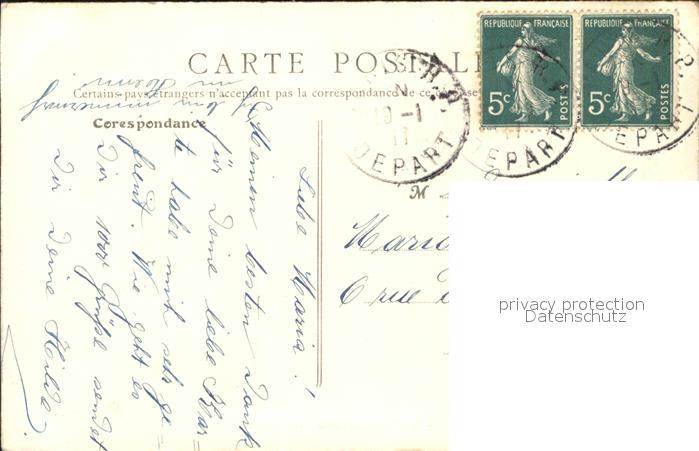 CARTE POSTALE
Certains pays étrangers n'acceptent pas la correspondance de ce
Corespondance
RÉPUBLIQUE FRANÇAISE
5c
POSTES
RÉPUBLIQUE FRANÇAISE
5c
POSTES
DEPART
DEPART
DEPART
M
Maria
6 rue
Liebe Maria!
Meinen besten Dank
für Deine liebe Kar=
te habe mich sehr ge=
freut. Wie geht es
Dir 1000 Grüße sendet
Dir Deine Hilde.
privacy protection
Datenschutz